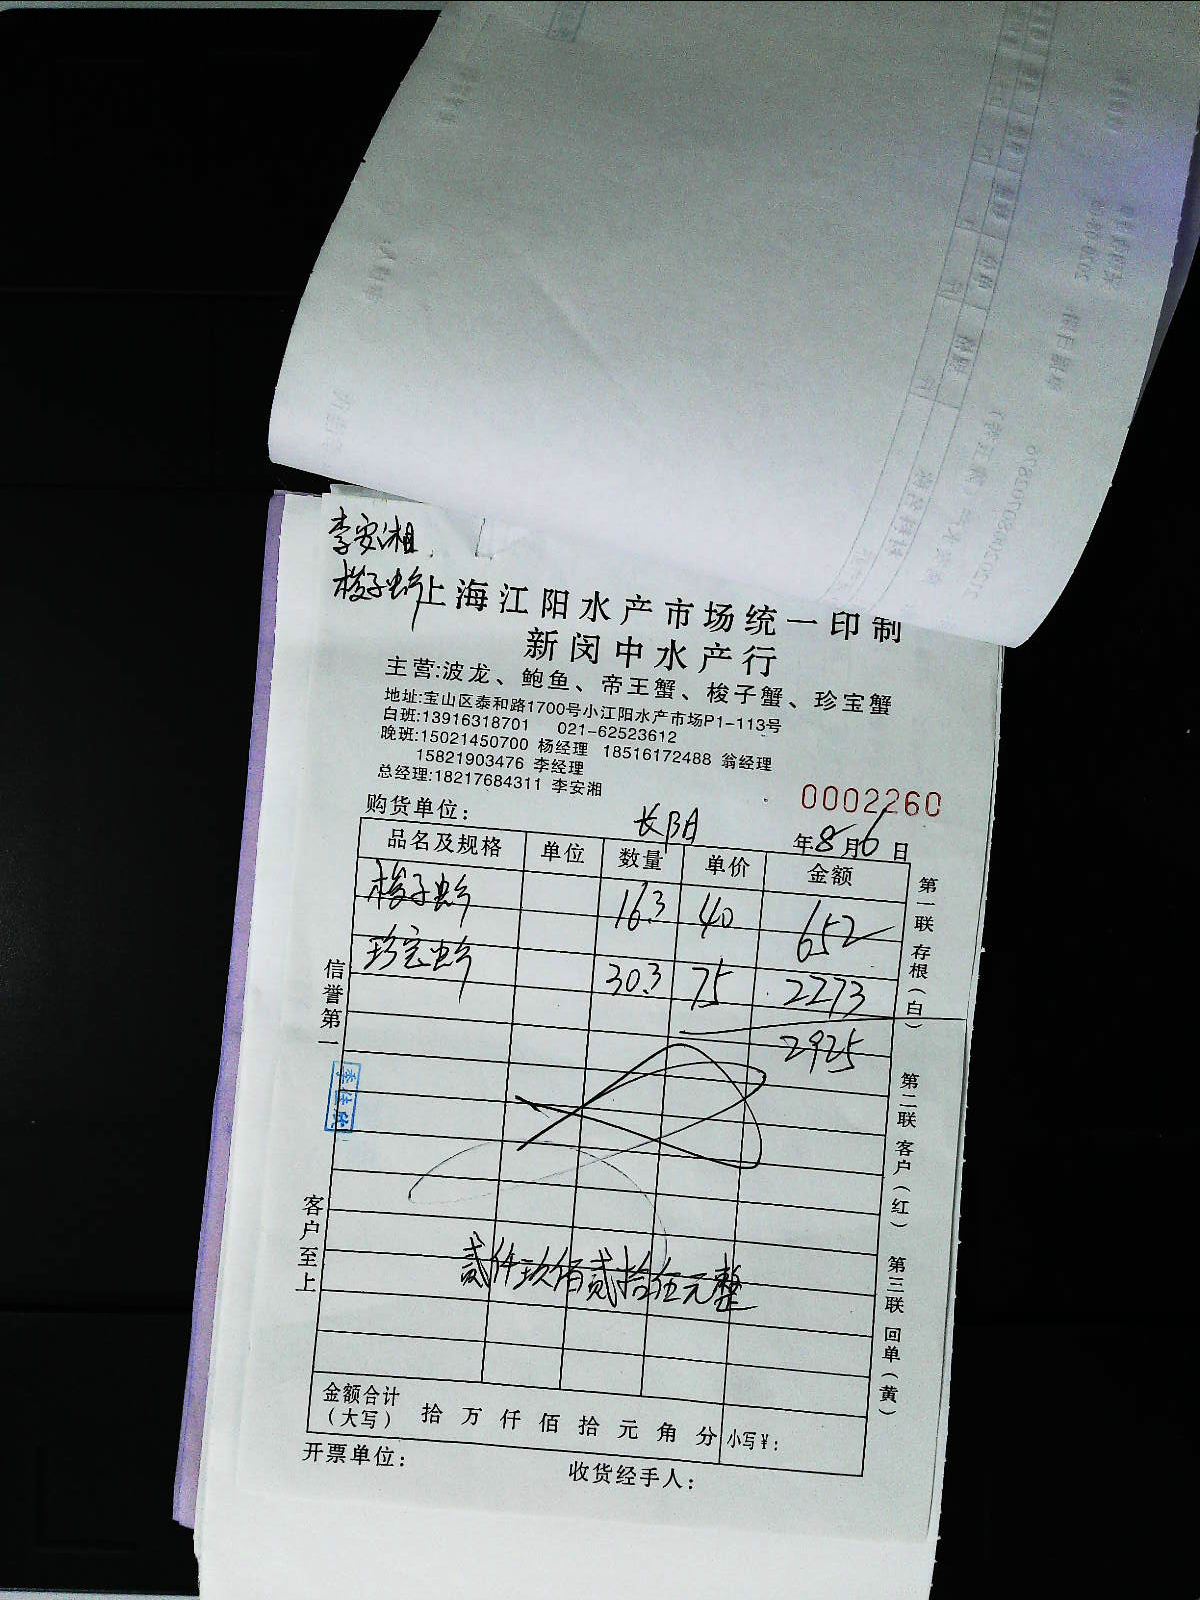 李安湘
梭子虫乡
上海江阳水产市场统一印制
新闵中水产行
主营:波龙、鲍鱼、帝王蟹、梭子蟹、珍宝蟹
地址:宝山区泰和路1700号小江阳水产市场P1-113号
白班:13916318701 021-62523612
晚班:15021450700 杨经理 18516172488 翁经理
15821903476 李经理
总经理:18217684311 李安湘
0002260
购货单位: 长阳 年8月6日
品名及规格 单位 数量 单价 金额
梭子虫乡 16.3 40 652
珍宝虫乡 30.3 75 2273
2925
贰仟玖佰贰拾伍元整
金额合计
(大写) 拾 万 仟 佰 拾 元 角 分 小写¥:
开票单位: 收货经手人:
信誉第一
客户至上
第一联 存根(白)
第二联 客户(红)
第三联 回单(黄)